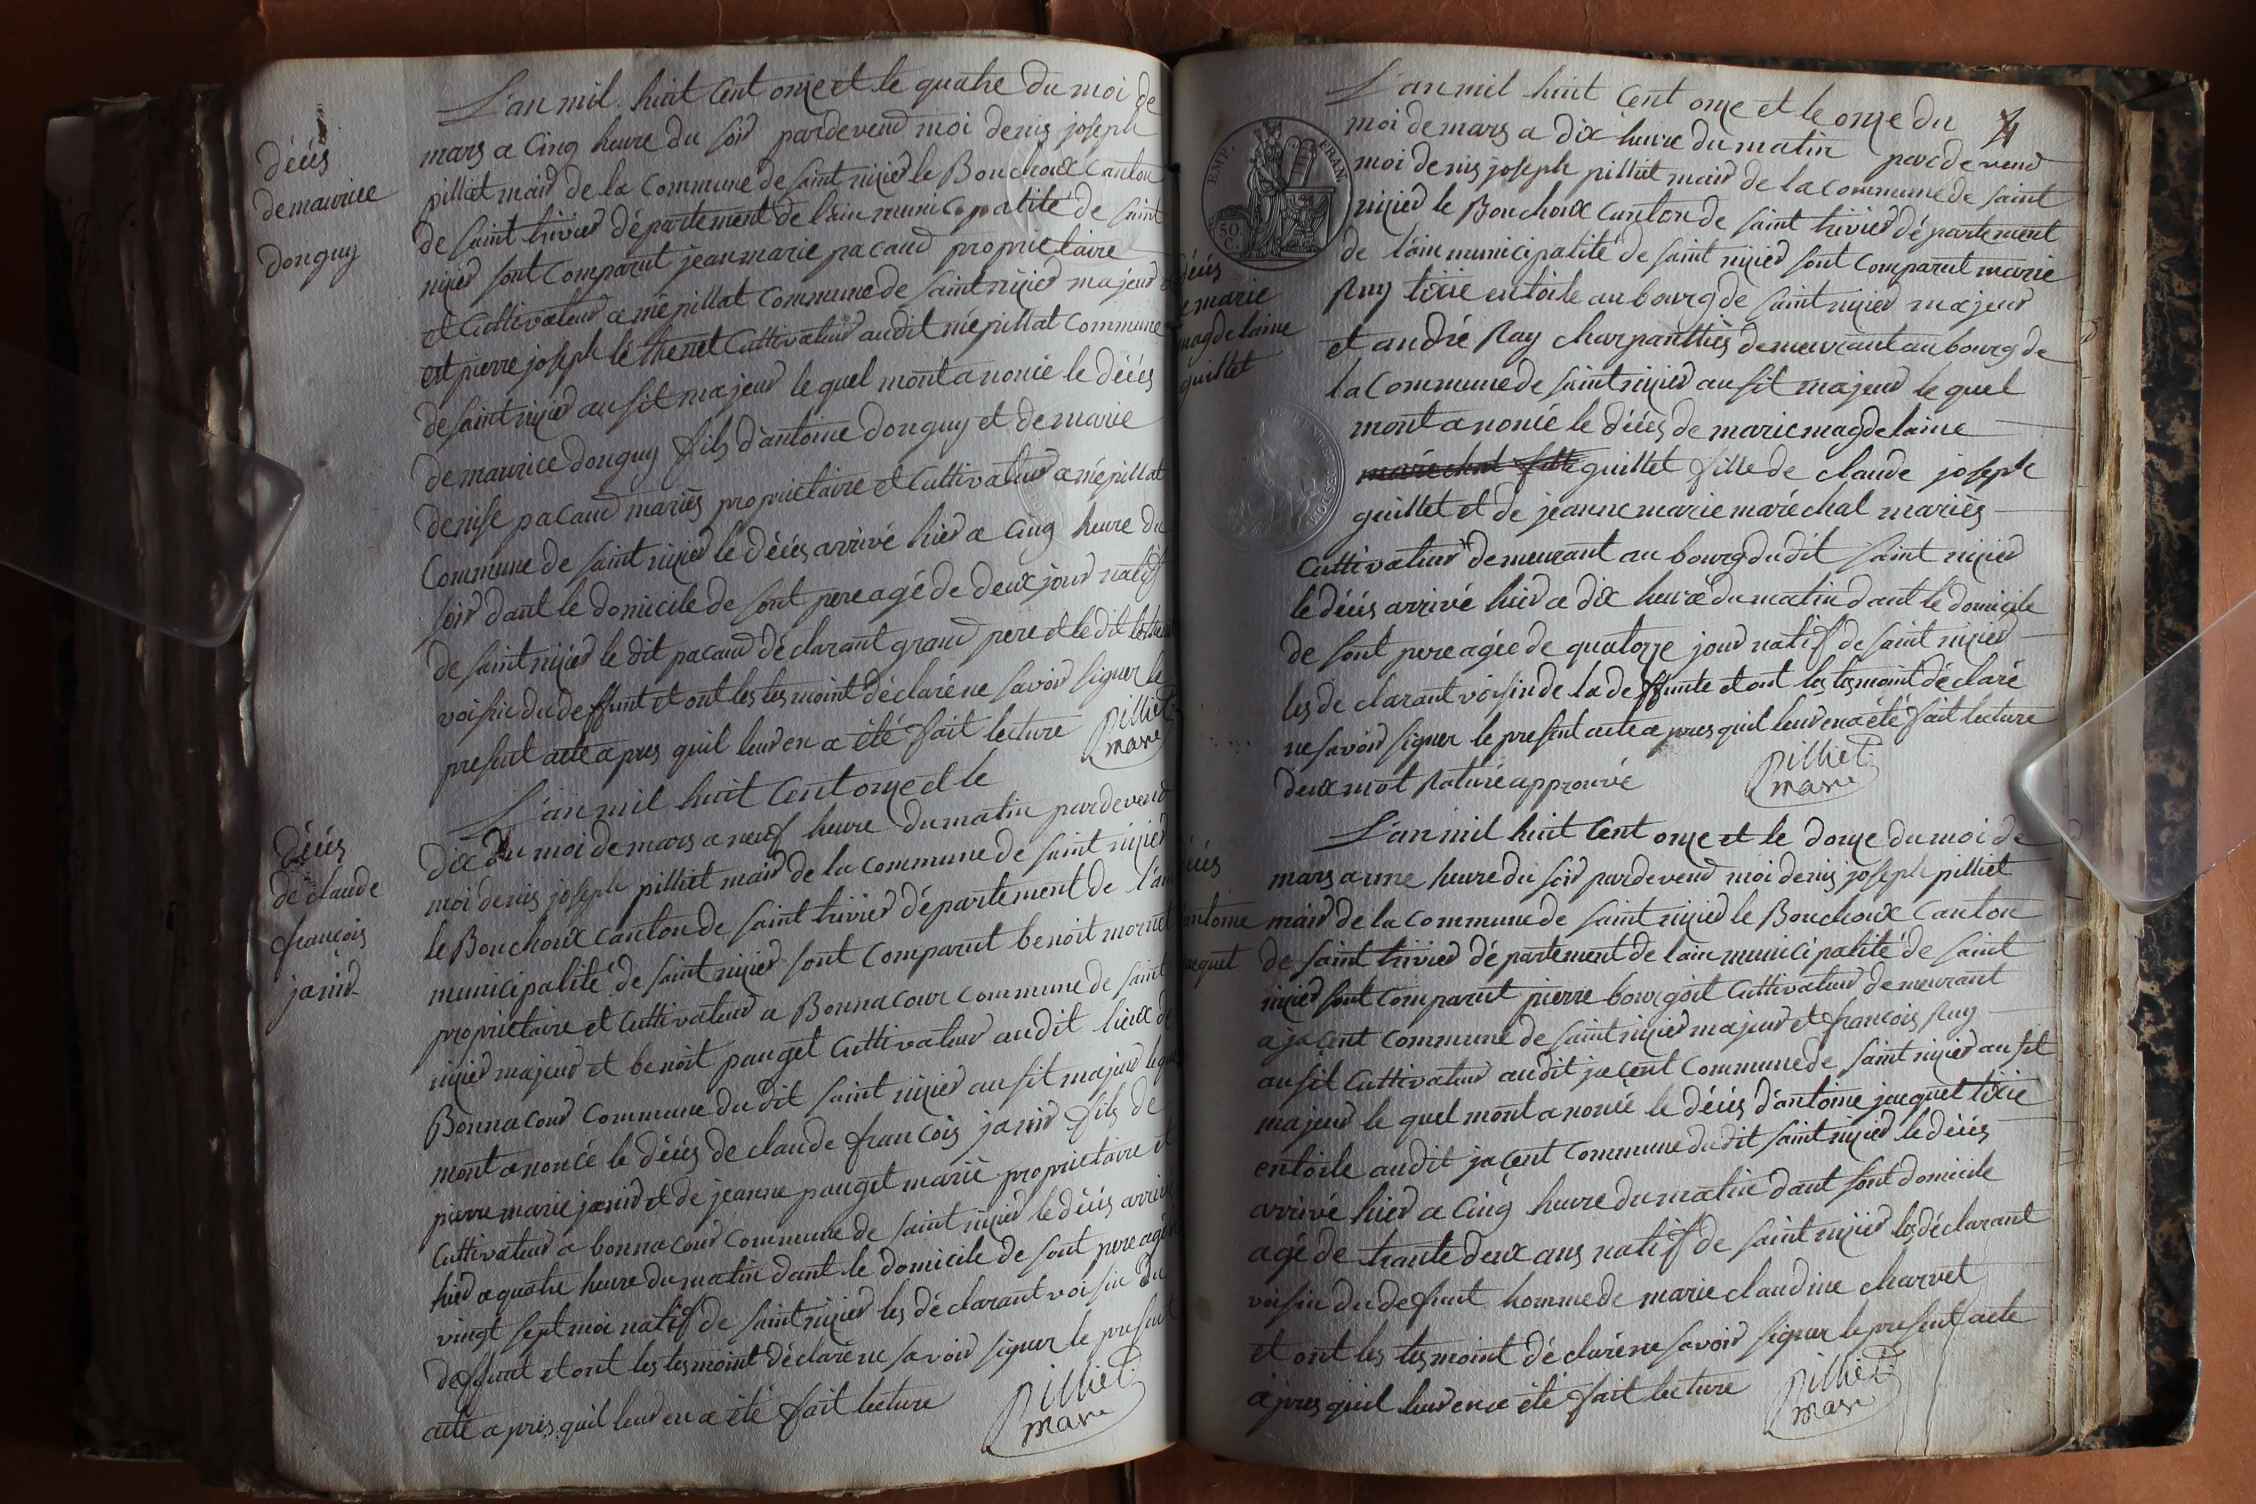 décés
de maurice
donguy
L'an mil huit Cent onze et le quatre du moi de
mars a Cinq heure du soir pardevend moi denis joseph
pilliet mair de la Commune de saint nizier le Bouchoux Canton
de saint trivier département de lain municipalité de saint
nizier sont Comparut jean marie pacaud proprietaire
et Cultivateur a mépillat Commune de saint nizier majeur
et pierre joseph le thenet Cultivateur audit mépillat Commune
de saint nizier ausit majeur le quel mont anoncé le décés
de maurice donguy fils d'antoine donguy et de marie
denise pacaud mariés proprietaire et Cultivateur a mépillat
Commune de saint nizier le décés arrivé hier a Cinq heure du
soir dant le domicile de sont pere agé de deux jour natif
de saint nizier le dit pacaud déclarant grand pere et le dit
voisin du deffunt et ont les tesmoint déclaré ne savoir signer le
present acte apres quil leur en a été fait lecture
Pilliet
mair
décés
de claude
françois
janid
L'an mil huit Cent onze et le
dix du moi de mars a neuf heure du matin pardevend
moi denis joseph pilliet mair de la commune de saint nizier
le Bouchoux Canton de saint trivier département de l'ain
municipalité de saint nizier sont Comparut benoit mornet
proprietaire et Cultivateur a Bonnacour Commune de saint
nizier majeur et benoit pauget Cultivateur audit lieux de
Bonnacour Commune du dit saint nizier ausit majeur le quel
mont anoncé le décés de claude françois janid fils de
pierre marie janid et de jeanne pauget marié proprietaire et
Cultivateur a bonnacour Commune de saint nizier le décés arrivé
hier a quatre heure du matin dant le domicile de sont pere agé
vingt sept moi natif de saint nizier les déclarant voisin du
deffunt et ont les tesmoint déclaré ne savoir signer le present
acte apres quil leur en a été fait lecture
Pilliet
mair
EMP. FRAN
50 C.
décés
de marie
magdelaine
guillet
L'an mil huit Cent onze et le onze du
moi de mars a dix heure du matin pardevend
moi denis joseph pilliet mair de la Commune de saint
nizier le Bouchoux Canton de saint trivier département
de l'ain municipalité de saint nizier sont Comparut marie
Ruy tixie en toile au bourg de saint nizier majeur
et andré Ray charpanttiés demeurant au bourg de
la Commune de saint nizier ausit majeur le quel
mont anoncé le décés de marie magdelaine
maréchal fille guillet fille de claude joseph
guillet et de jeanne marie maréchal mariés
Cultivateur demeurant au bourg du dit saint nizier
le décés arrivé hier a dix heure du matin dant le domicile
de sont pere agée de quatorze jour natif de saint nizier
les declarant voisin de la deffunte et ont les tesmoint déclaré
ne savoir signer le present acte apres quil leur en a été fait lecture
deux mot raturé approuvé
Pilliet
mair
décés
antoine
jacquet
L'an mil huit Cent onze et le douze du moi de
mars a une heure du soir pardevend moi denis joseph pilliet
mair de la Commune de saint nizier le Bouchoux Canton
de saint trivier département de lain municipalité de saint
nizier sont Comparut pierre bourgoit Cultivateur demeurant
a jacent Commune de saint nizier majeur et françois Ruy
ausit Cultivateur audit jacent Commune de saint nizier ausit
majeur le quel mont anoncé le décés d'antoine jacquet tixie
en toile audit jacent Commune du dit saint nizier le décés
arrivé hier a Cinq heure du matin dant sont domicile
agé de trante deux ans natif de saint nizier les déclarant
voisin du defunt homme de marie claudine charvet
et ont les tesmoint déclaré ne savoir signer le present acte
apres quil leur en a été fait lecture
Pilliet
mair